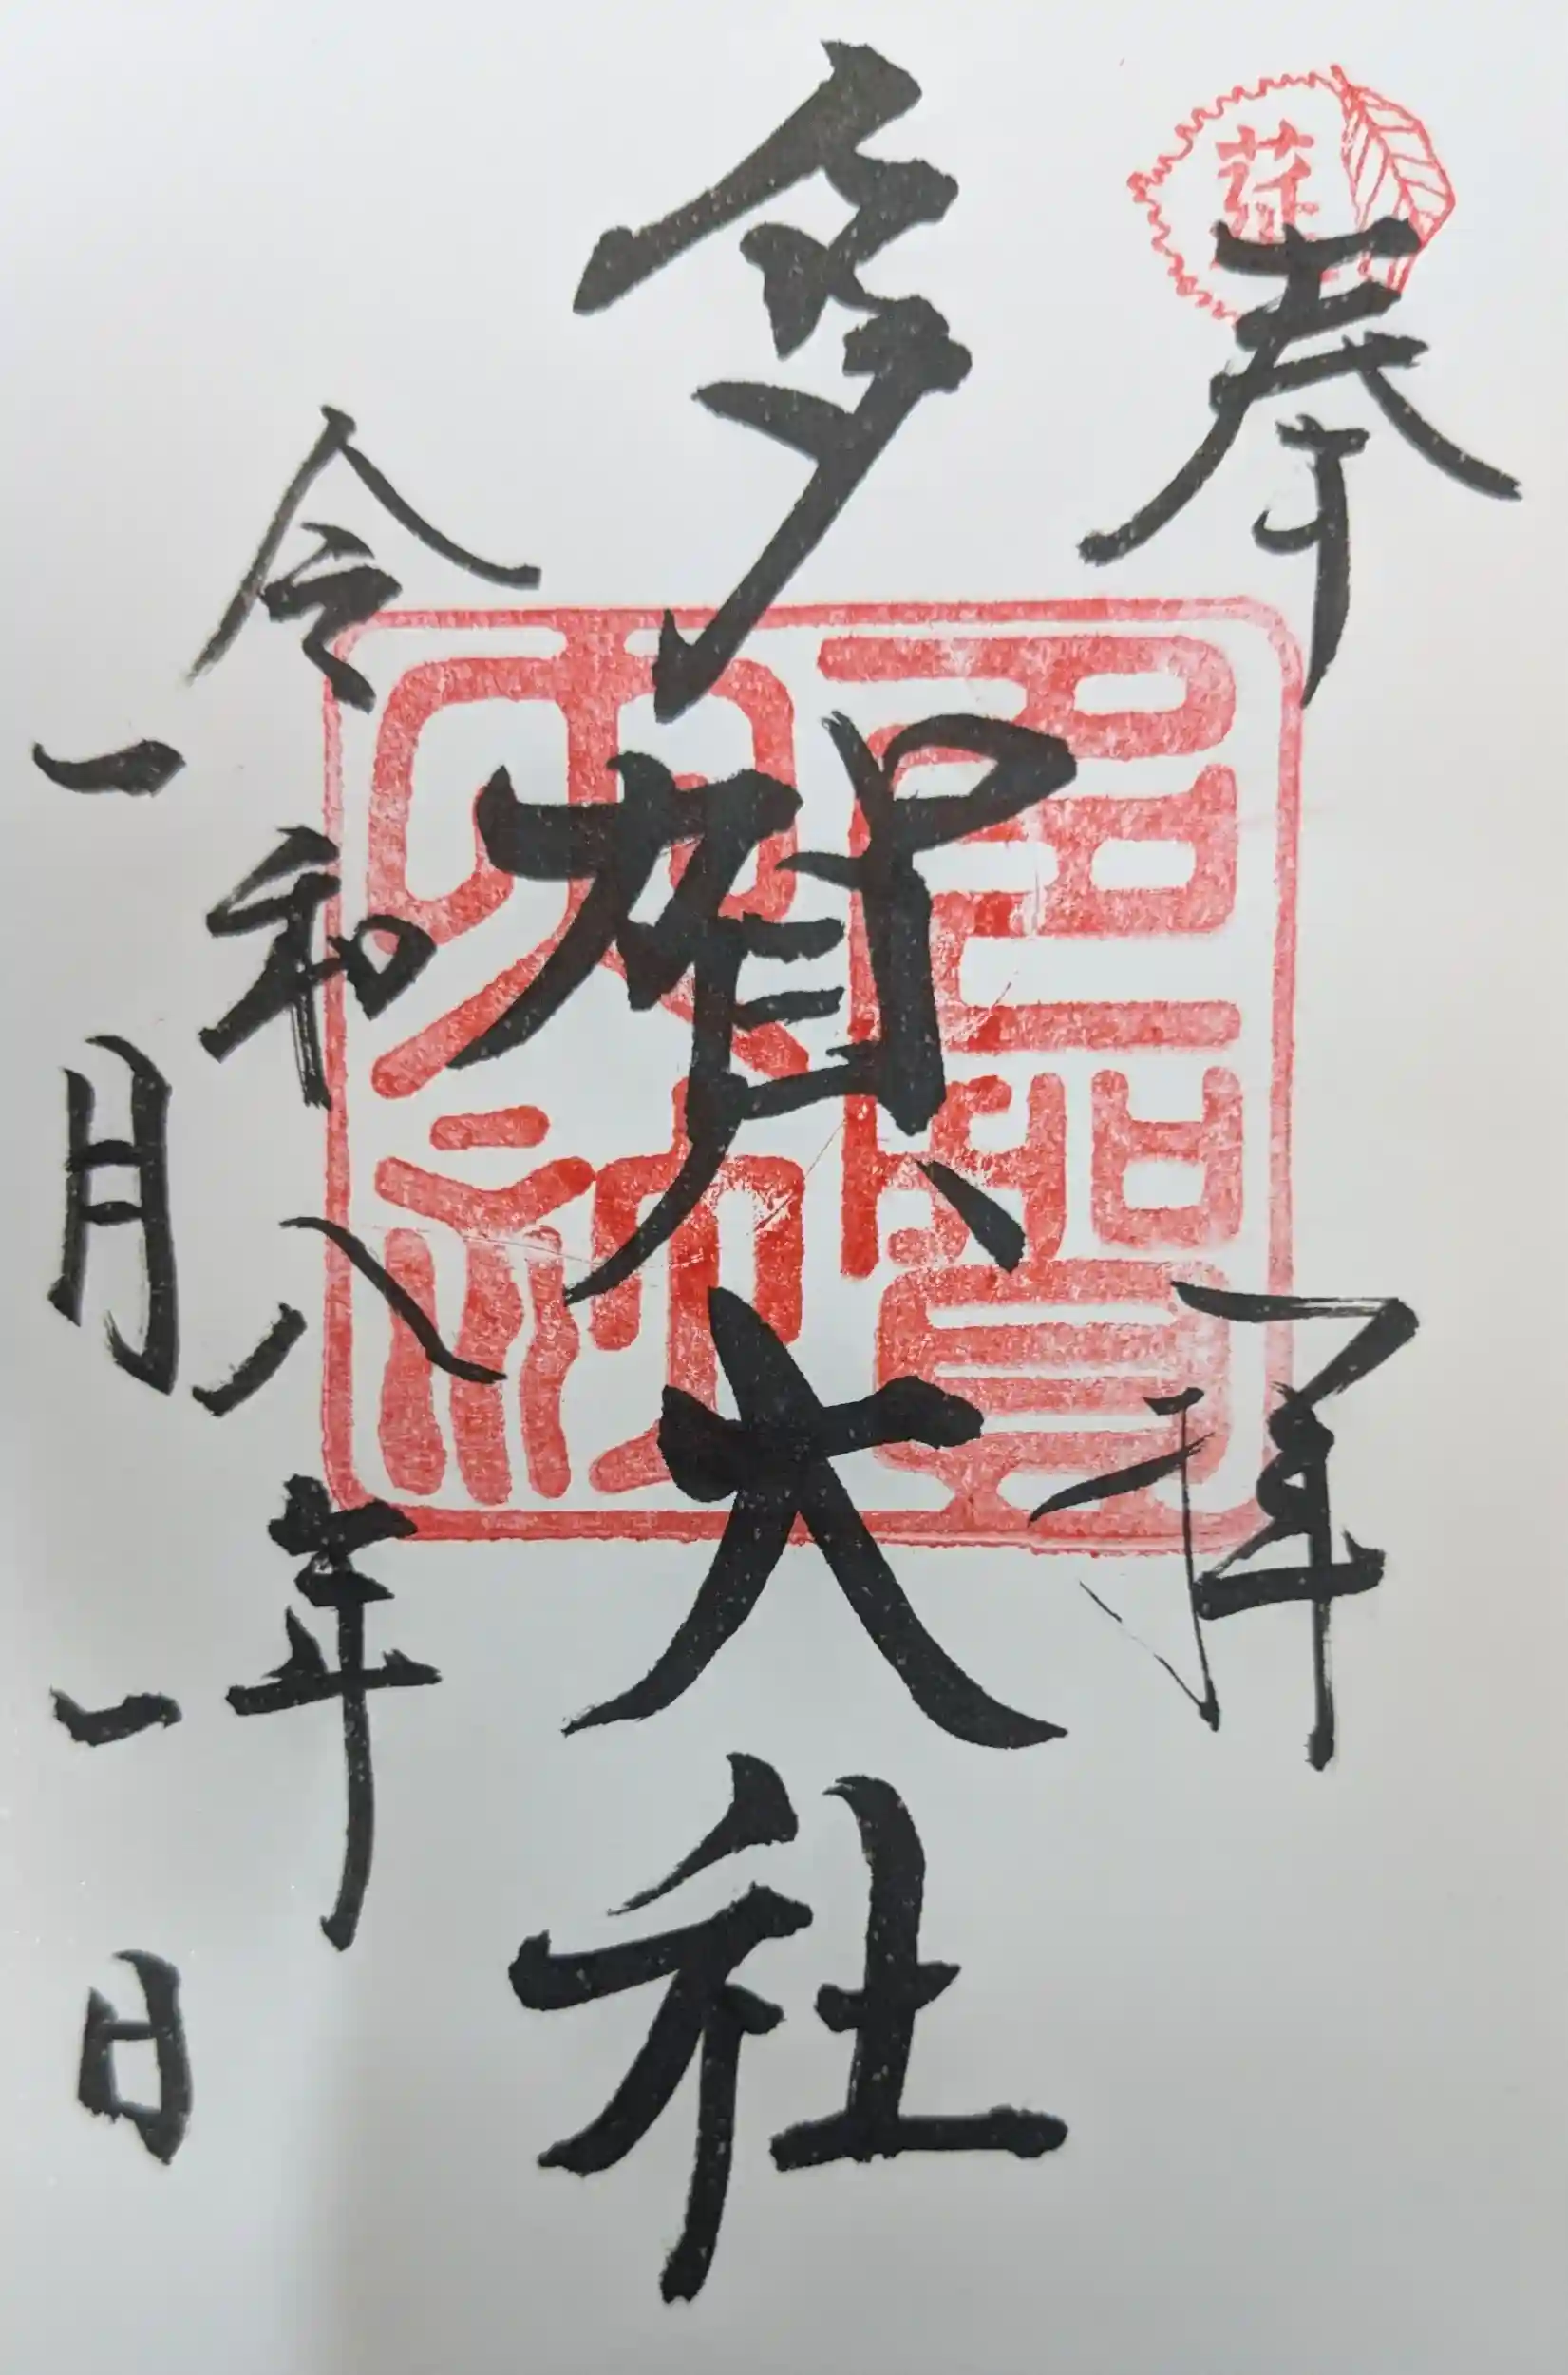 奉拝
多賀大社
令和八年
一月一日
多賀大社